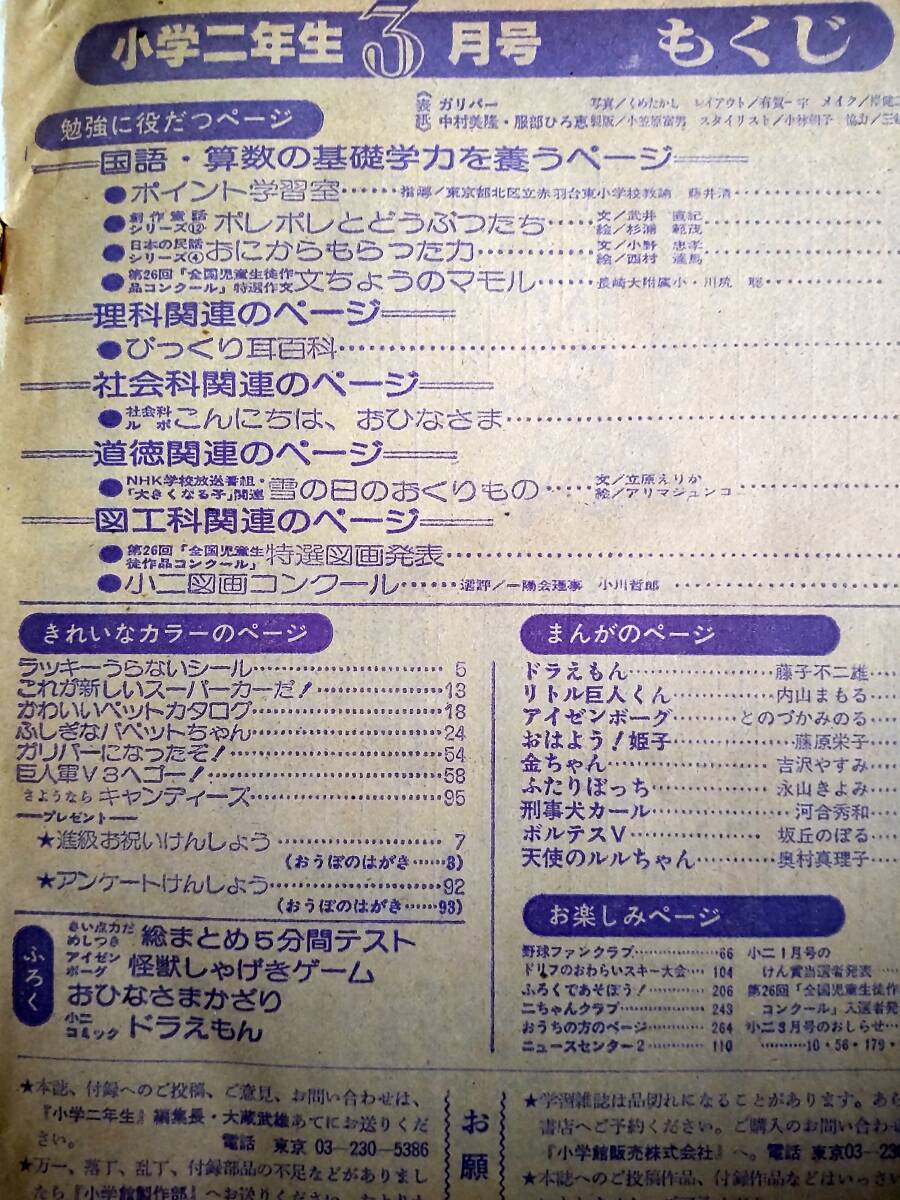 小学二年生 3月号 もくじ
《表紙》 ガリバー 写真/くめたかし レイアウト/有賀一宇 メイク/
中村美隆・服部ひろ恵 製版/小笠原富男 スタイリスト/小林朝子 協力/三
勉強に役だつページ
国語・算数の基礎学力を養うページ
●ポイント学習室……指導/東京都北区立赤羽台東小学校教諭 藤井清
●創作童話シリーズ⑫ ポレポレとどうぶつたち……文/武井直紀 絵/杉浦範茂
●日本の民話シリーズ④ おにからもらった力……文/小野忠孝 絵/西村達馬
●第26回「全国児童生徒作品コンクール」特選作文 文ちょうのマモル……長崎大附属小・川流 聡
理科関連のページ
●びっくり耳百科
社会科関連のページ
●社会科ルポ こんにちは、おひなさま
道徳関連のページ
●NHK学校放送番組・「大きくなる子」関連 雪の日のおくりもの……文/立原えりか 絵/アリマジュンコ
図工科関連のページ
●第26回「全国児童生徒作品コンクール」特選図画発表
●小二図画コンクール……選評/一陽会理事 小川哲郎
きれいなカラーのページ
ラッキーうらないシール……5
これが新しいスーパーカーだ!……13
かわいいペットカタログ……18
ふしぎなパペットちゃん……24
ガリバーになったぞ!……54
巨人軍V3へゴー!……58
さようなら キャンディーズ……95
プレゼント
★進級お祝いけんしょう……7
(おうぼのはがき……8)
★アンケートけんしょう……92
(おうぼのはがき……93)
まんがのページ
ドラえもん……藤子不二雄
リトル巨人くん……内山まもる
アイゼンボーグ……とのづかみのる
おはよう!姫子……藤原栄子
金ちゃん……吉沢やすみ
ふたりぼっち……永山きよみ
刑事犬カール……河合秀和
ボルテスV……坂丘のぼる
天使のルルちゃん……奥村真理子
ふろく
きい点力だめしつき 総まとめ5分間テスト
アイゼンボーグ 怪獣しゃげきゲーム
おひなさまかざり
小二コミック ドラえもん
お楽しみページ
野球ファンクラブ……66
ドリフのおわらいスキー大会……104
ふろくであそぼう!……206
二ちゃんクラブ……243
おうちの方のページ……264
ニュースセンター2……110
小二1月号の
けん賞当選者発表
第26回「全国児童生徒作
コンクール」入選者発
小二3月号のおしらせ
10・56・179・
★本誌、付録へのご投稿、ご意見、お問い合わせは、
『小学二年生』編集長・大蔵武雄あてにお送りくだ
さい。 電話 東京03—230—5386
★万一、落丁、乱丁、付録部品の不足などがありまし
たら『小学館製作部』へお送りください。
お願
★学習雑誌は品切れになることがあります。あら
書店へご予約ください。ご購入のお問い合わ
『小学館販売株式会社』へ。電話 東京03—230
★本誌へのご投稿作品、付録などはいっさい